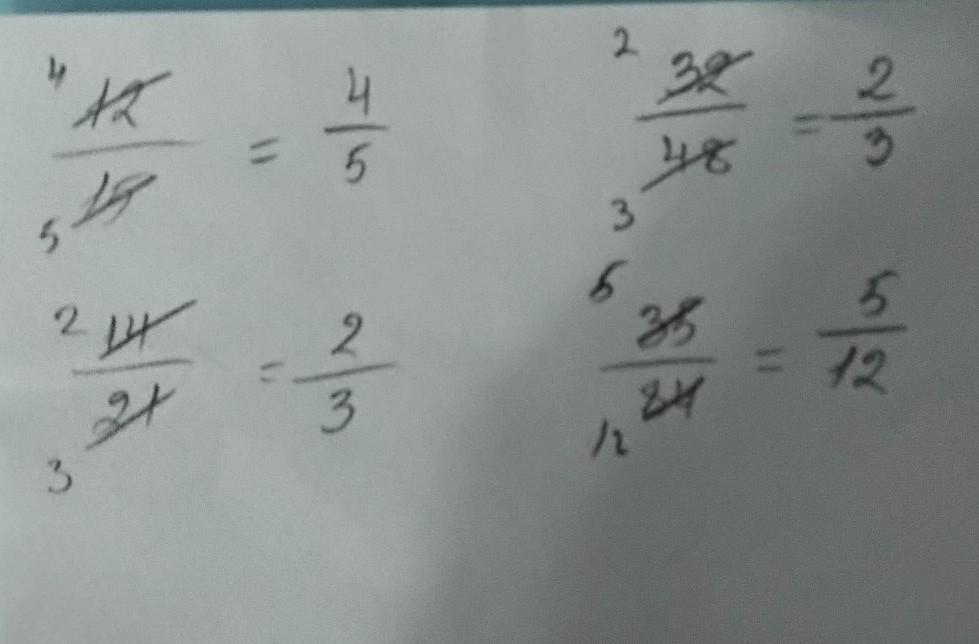 4 12/15 5 = 4/5
2 32/48 3 = 2/3
2 14/21 3 = 2/3
5 35/84 12 = 5/12